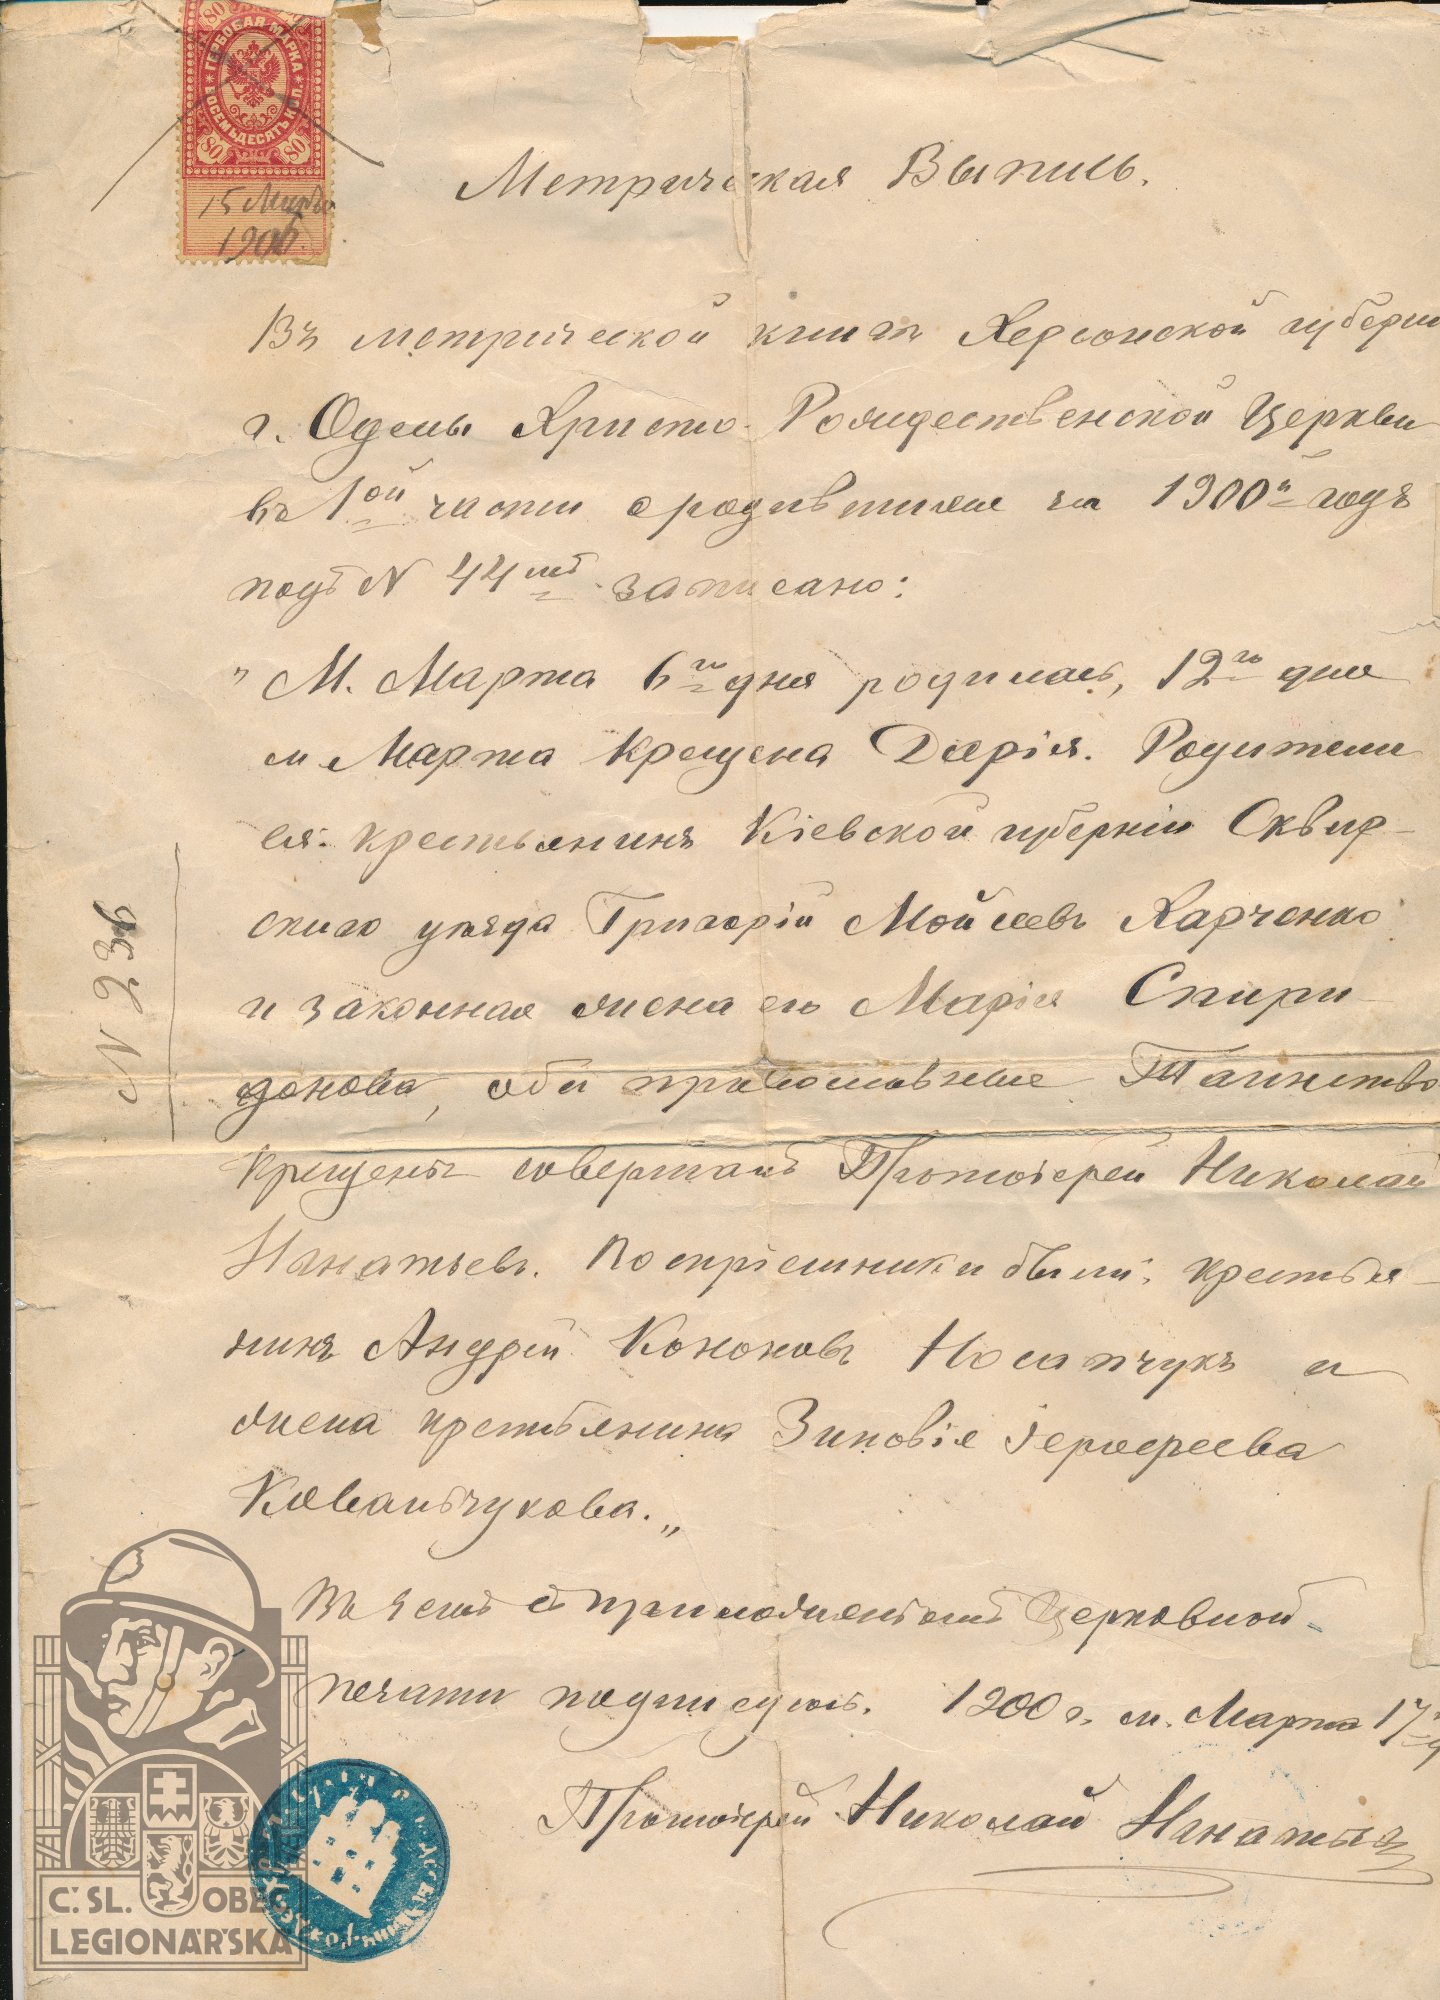 80 80
ГЕРБОВАЯ МАРКА
ВОСЕМЬДЕСЯТЪ КОП.
80 80
15 Марта
1906.
Метрическая Выпись.
Въ метрической книгѣ Херсонской губерніи
г. Одессы Христо-Рождественской Церкви
въ 1ой части о родившихся за 1900й годъ
подъ N 44мъ записано:
„М. Марта 6го дня родилась, 12го дня
м. Марта крещена Дарія. Родители
ея: крестьянинъ Кіевской губерніи Сквир-
скаго уѣзда Григорій Мойсеевъ Харченко
и законная жена его Марія Спири-
донова, оба православные Таинство
крещенія совершалъ Протоіерей Николай
Воспріемники были: крестья-
нинъ Андрей Кононовъ и
жена крестьянина Зиновія
Ковальчукова.„
Въ чемъ съ приложеніемъ Церковной
печати подписуюсь. 1900 г. м. Марта 17
Протоіерей Николай
N 236
Č. SL. OBEC
LEGIONÁŘSKÁ